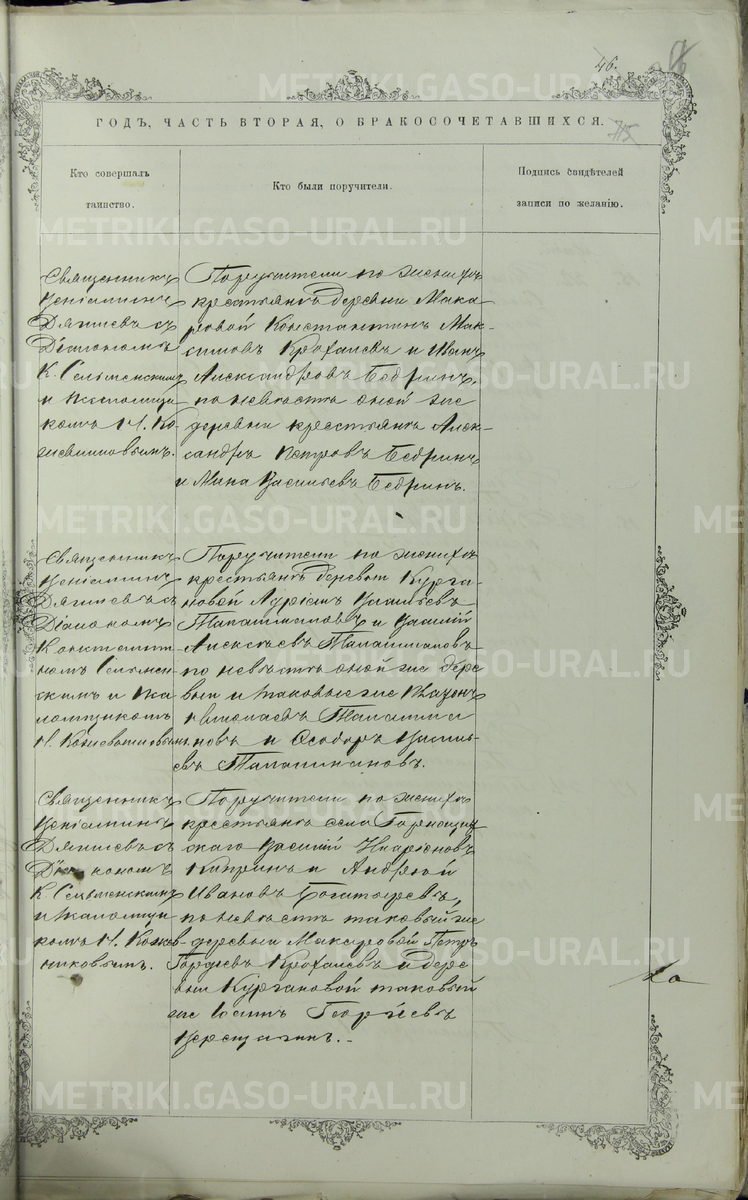 46.
ГОДЪ, ЧАСТЬ ВТОРАЯ, О БРАКОСОЧЕТАВШИХСЯ.
Кто совершалъ
таинство.
Кто были поручители.
Подпись свидѣтелей
записи по желанію.
Священникъ
Веніаминъ
Дягилевъ съ
Діакономъ
К. Сельменскимъ
и псаломщи
комъ Н. Ко
жевниковымъ.
Поручители по женихѣ
крестьяне деревни Мака
ровой Константинъ Мак-
симовъ Крохалевъ и Иванъ
Александровъ Бедринъ,
по невѣстѣ оной же
деревни крестьяне Алек-
сандръ Петровъ Бедринъ
и Мина Васильевъ Бедринъ.
Священникъ
Веніаминъ
Дягилевъ съ
Діакономъ
Константи
номъ Сельмен-
скимъ и пса
ломщикомъ
Н. Кожевниковымъ
Поручители по женихѣ
крестьяне деревни Курга-
новой Васильевъ
Талашмановъ и Василій
Алексѣевъ Талашмановъ
по невѣстѣ оной же дере
вни и таковые же
Николаевъ Талашма
новъ и Ѳеодоръ Василь-
евъ Талашмановъ.
Священникъ
Веніаминъ
Дягилевъ съ
Діакономъ
К. Сельменскимъ
и псаломщи
комъ Н. Кожев
никовымъ.
Поручители по женихѣ
крестьяне села Горнощит
скаго Василій Иларіоновъ
и Андрей
Ивановъ Богатыревъ,
по невѣстѣ таковый же
деревни Макаровой Петръ
Гордѣевъ Крохалевъ и дере
вни Кургановой таковый
же Георгіевъ

METRIKI.GASO-URAL.RU